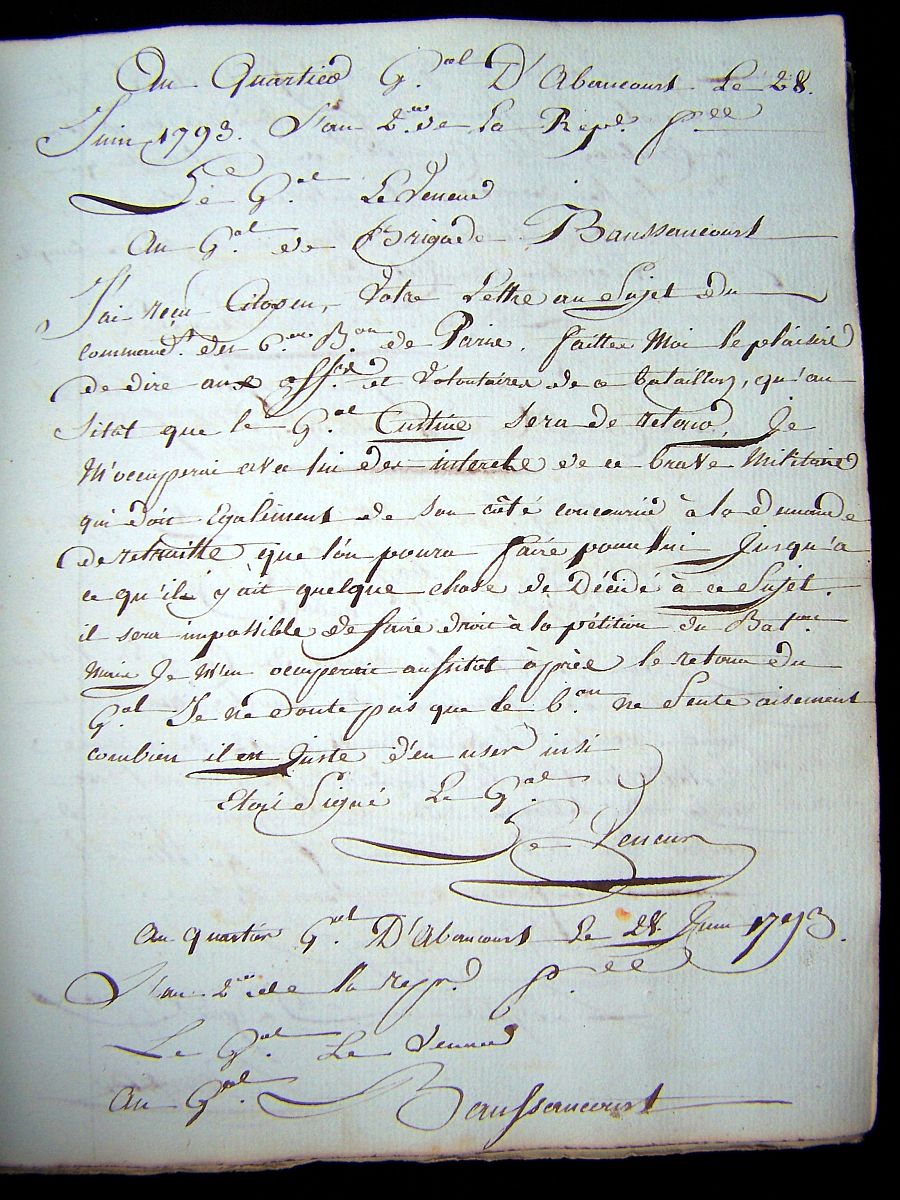 Au Quartier G.al D'Abancourt Le 28.
Juin 1793. L'an 2.me de La Repe. f.ee
Le G.al Le Veneur
Au G.al de Brigade Baussancourt
J'ai reçu Citoyen, Votre Lettre au Sujet du
command.t du 6.me B.on de Paris. faittes Moi le plaisir
de dire aux off.ers et Volontaires de ce bataillon, qu'au
sitot que le G.al Custine sera de retour, Je
M'occuperai avec lui des interets de ce brave Militaire
qui doit Egalement de son côté concourir à la demande
de retraitte que l'on poura faire pour lui Jusqu'a
ce qu'il y ait quelque chose de Décidé à ce Sujet.
il sera impossible de faire droit à la pétition du Bat.on
Mais Je m'en ocuperai aussitot après le retour du
G.al Je ne doute pas que le b.on ne Sente aisement
combien il est Juste d'en user insi
Etoit Signé Le G.al
Le Veneur
Au quartier G.al D'Abancourt Le 28 Juin 1793.
L'an 2.me de la rep. f.ee
Le G.al Le Veneur
Au G.al Baussancourt